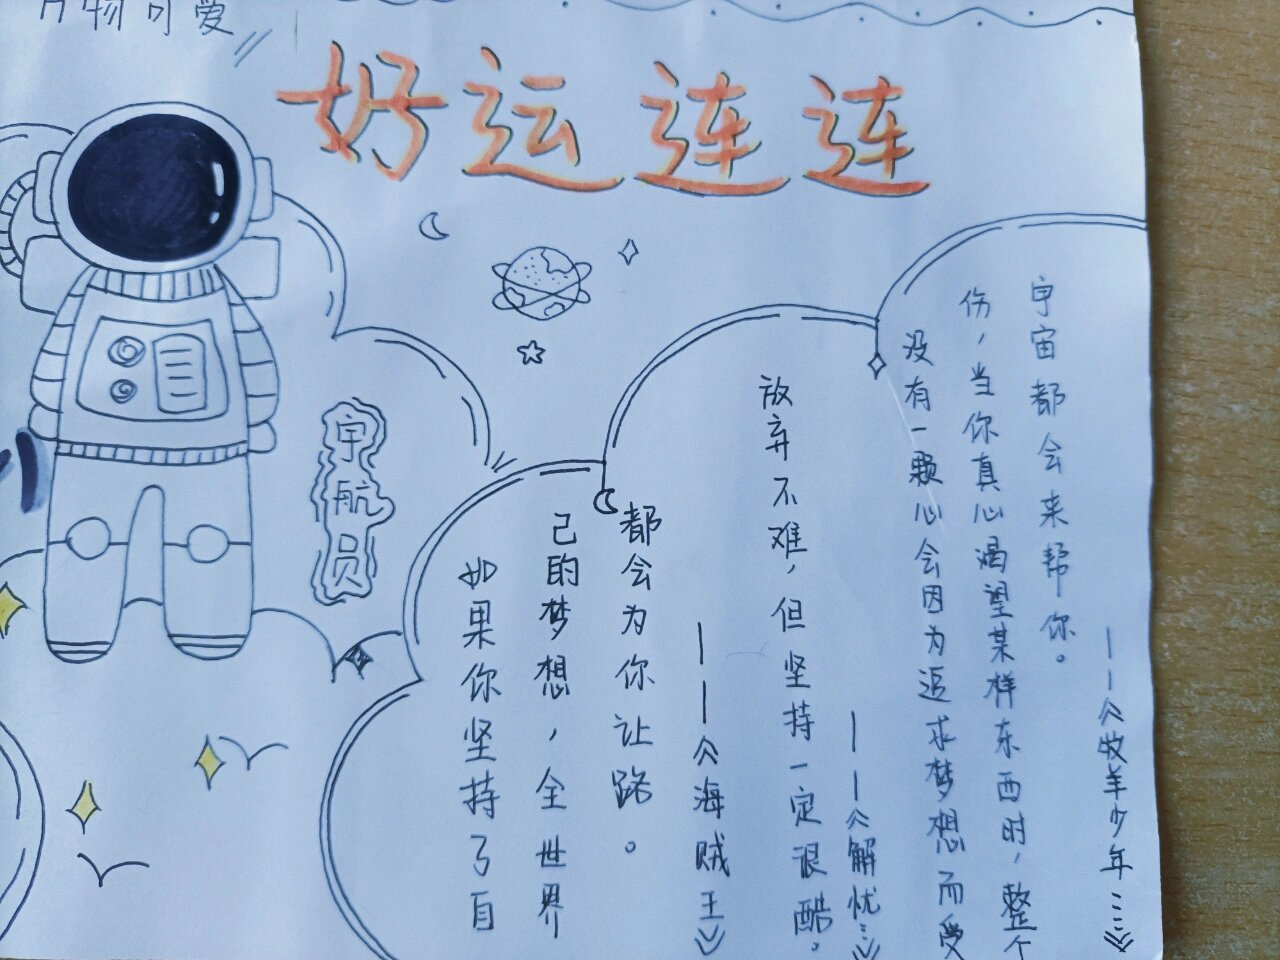 万物可爱
好运连连
宇航员
如果你坚持了自
己的梦想，全世界
都会为你让路。
——《海贼王》
放弃不难，但坚持一定很酷。
——《解忧…》
没有一颗心会因为追求梦想而受
伤，当你真心渴望某样东西时，整个
宇宙都会来帮你。
——《牧羊少年……》